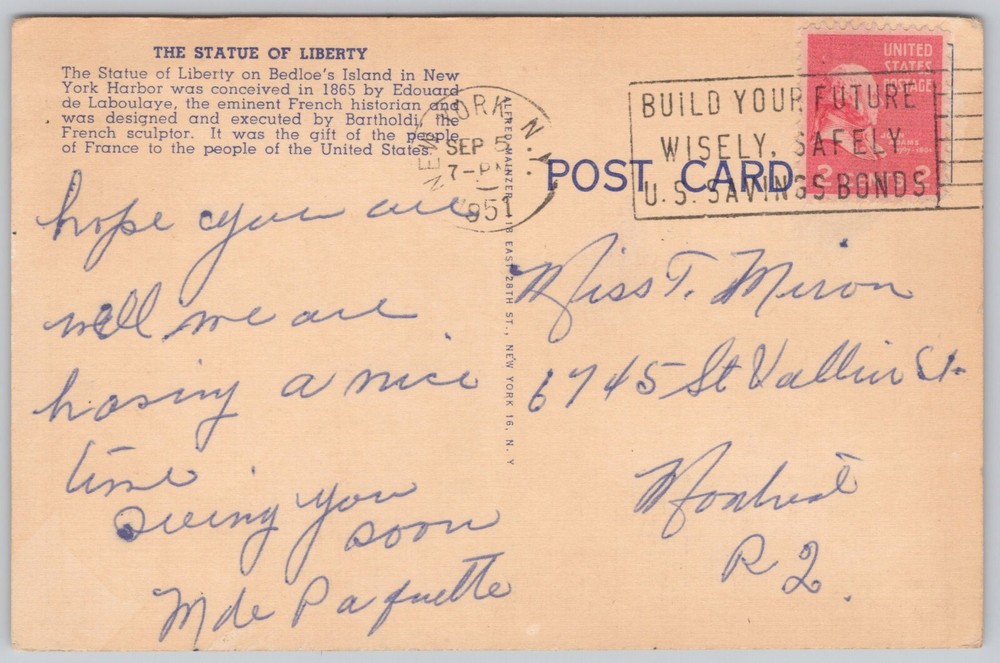 THE STATUE OF LIBERTY
The Statue of Liberty on Bedloe's Island in New
York Harbor was conceived in 1865 by Edouard
de Laboulaye, the eminent French historian and
was designed and executed by Bartholdi, the
French sculptor. It was the gift of the people
of France to the people of the United States.
hope you are
well we are
having a nice
time
seeing you
soon
Mde Paquette
NEW YORK, N.Y.
SEP 5
7-PM
1951
ALFRED MAINZER, 118 EAST 28TH ST., NEW YORK 16, N. Y
POST CARD
UNITED
STATES
POSTAGE
ADAMS
2 2
BUILD YOUR FUTURE
WISELY, SAFELY
U.S. SAVINGS BONDS
Miss T. Miron
6745 St Vallier St.
Montreal
R 2.